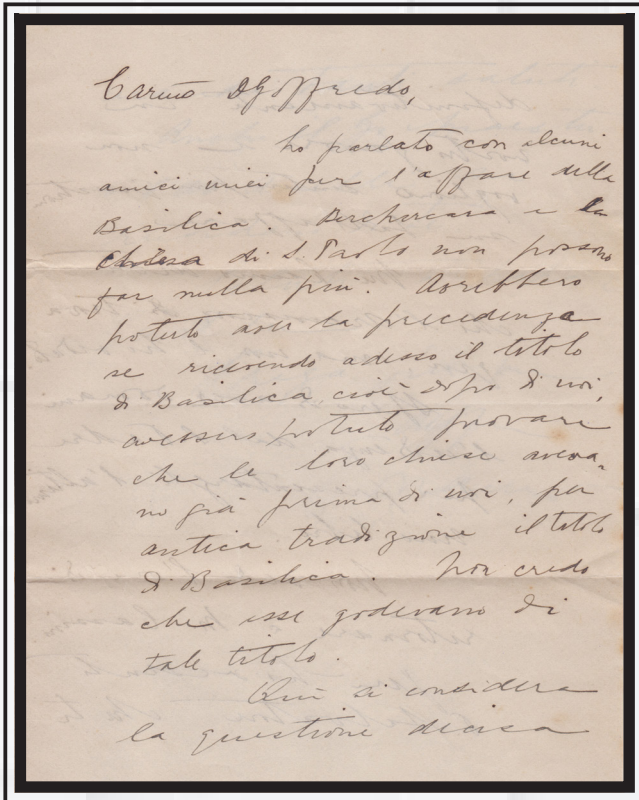 Carmo D Goffredo,
ho parlato con alcuni
amici miei per l'affare della
Basilica. Berchercara e la
Chiesa di S. Paolo non possono
far nulla più. Avrebbero
potuto aver la precedenza
se ricevendo adesso il titolo
di Basilica cioè dopo di noi,
avessero potuto provare
che le loro chiese aveva-
no già prima di noi, per
antica tradizione il titolo
di Basilica. Non credo
che esse godevano di
tale titolo.
Qui si considera
la questione decisa